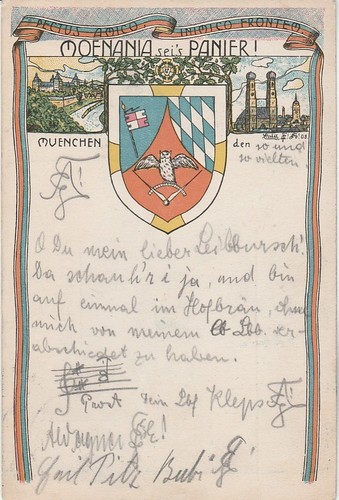 PECTUS AMICO INIMICO FRONTEM
MOENANIA sei's PANIER!
MUENCHEN den so und
so vielten
O Du mein lieber Leibbursch!
Da schauh'r i ja, und bin
auf einmal im Hofbräu, ohne
mich von meinem Lbb. ver-
abschiedet zu haben.
Prost Dein Lbf Kleps
Karl Pilz Bubi